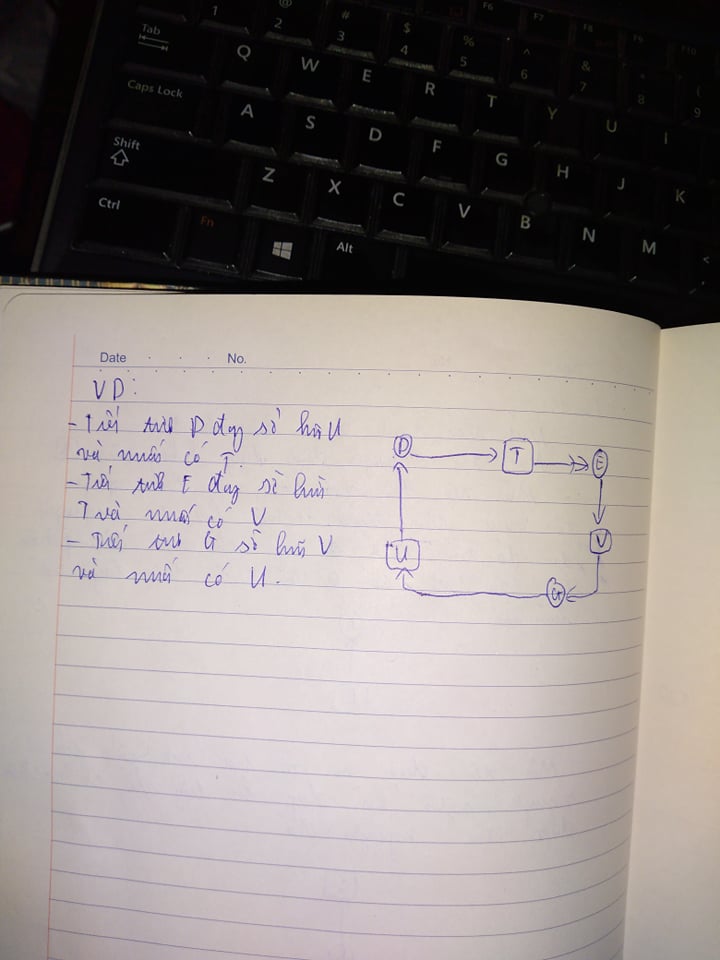 F6 F7 F8 F9 F10
1 @ 2 # 3 $ 4 % 5 ^ 6 & 7 * 8 ( 9
Tab Q W E R T Y U I
Caps Lock A S D F G H J K
Shift Z X C V B N M <
Ctrl Fn Alt
Date No.
VD:
- Tiến trình D đang sở hữu U
và muốn có T.
- Tiến trình E đang sở hữu
T và muốn có V
- Tiến trình G sở hữu V
và muốn có U.
D T E
U V
G